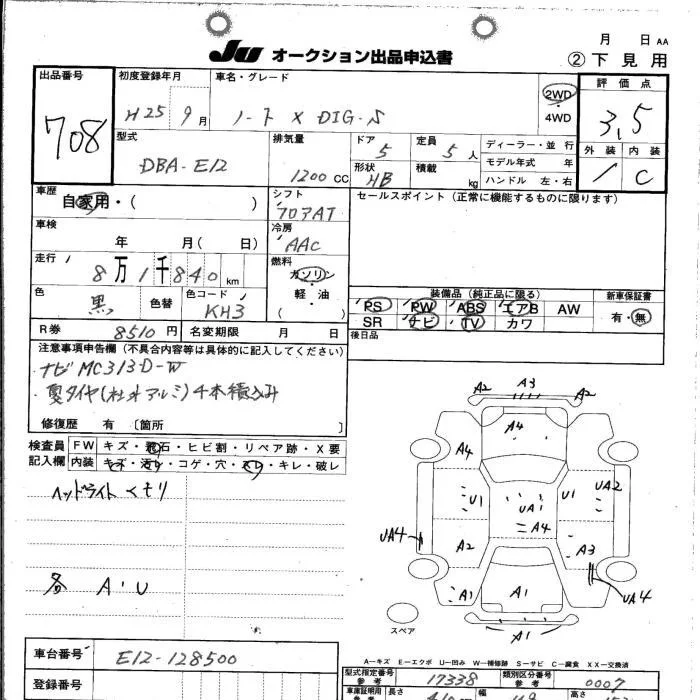 月 日 AA
JU オークション出品申込書 ②下見用
出品番号 初度登録年月 車名・グレード 2WD 4WD 評価点
708 H25 9月 ノート X DIG-S 3.5
型式 排気量 ドア 定員 ディーラー・並行 外装 内装
DBA-E12 1200CC 5 5人 モデル年式 年
形状 HB 積載 kg ハンドル 左・右 C
車歴 自家用・( ) シフト フロアAT セールスポイント (正常に機能するものに限ります)
車検 年 月( 日) 冷房 AAC
走行 8万1千840km 燃料 ガソリン 軽油 ( )
色 黒 色替 色コード KH3
装備品 (純正品に限る) 新車保証書
PS PW ABS エアB AW 有・無
SR ナビ TV カワ
R券 8510円 名変期限 月 日 後日品
注意事項申告欄 (不具合内容等は具体的に記入してください)
ナビMC313D-W
夏タイヤ(社外アルミ)4本積込み
修復歴 有 〔箇所 〕
検査員記入欄 FW キズ・飛石・ヒビ割・リペア跡・X要
内装 キズ・汚れ・コゲ・穴・スレ・キレ・破レ
ヘッドライトくモリ
各 A・U
A2 A3 A2
A4
A4
U1 UA1 U1 UA2
A4
UA4 A2 A3
UA4
A1 A1 A1
A1
スペア
A―キズ E―エクボ U―凹み W―補修跡 S―サビ C―腐食 XX―交換済
車台番号 E12-128500
型式指定番号 参考 17338 類別区分番号 参考 0007
登録番号
車庫証明用 参考 長さ 幅 高さ